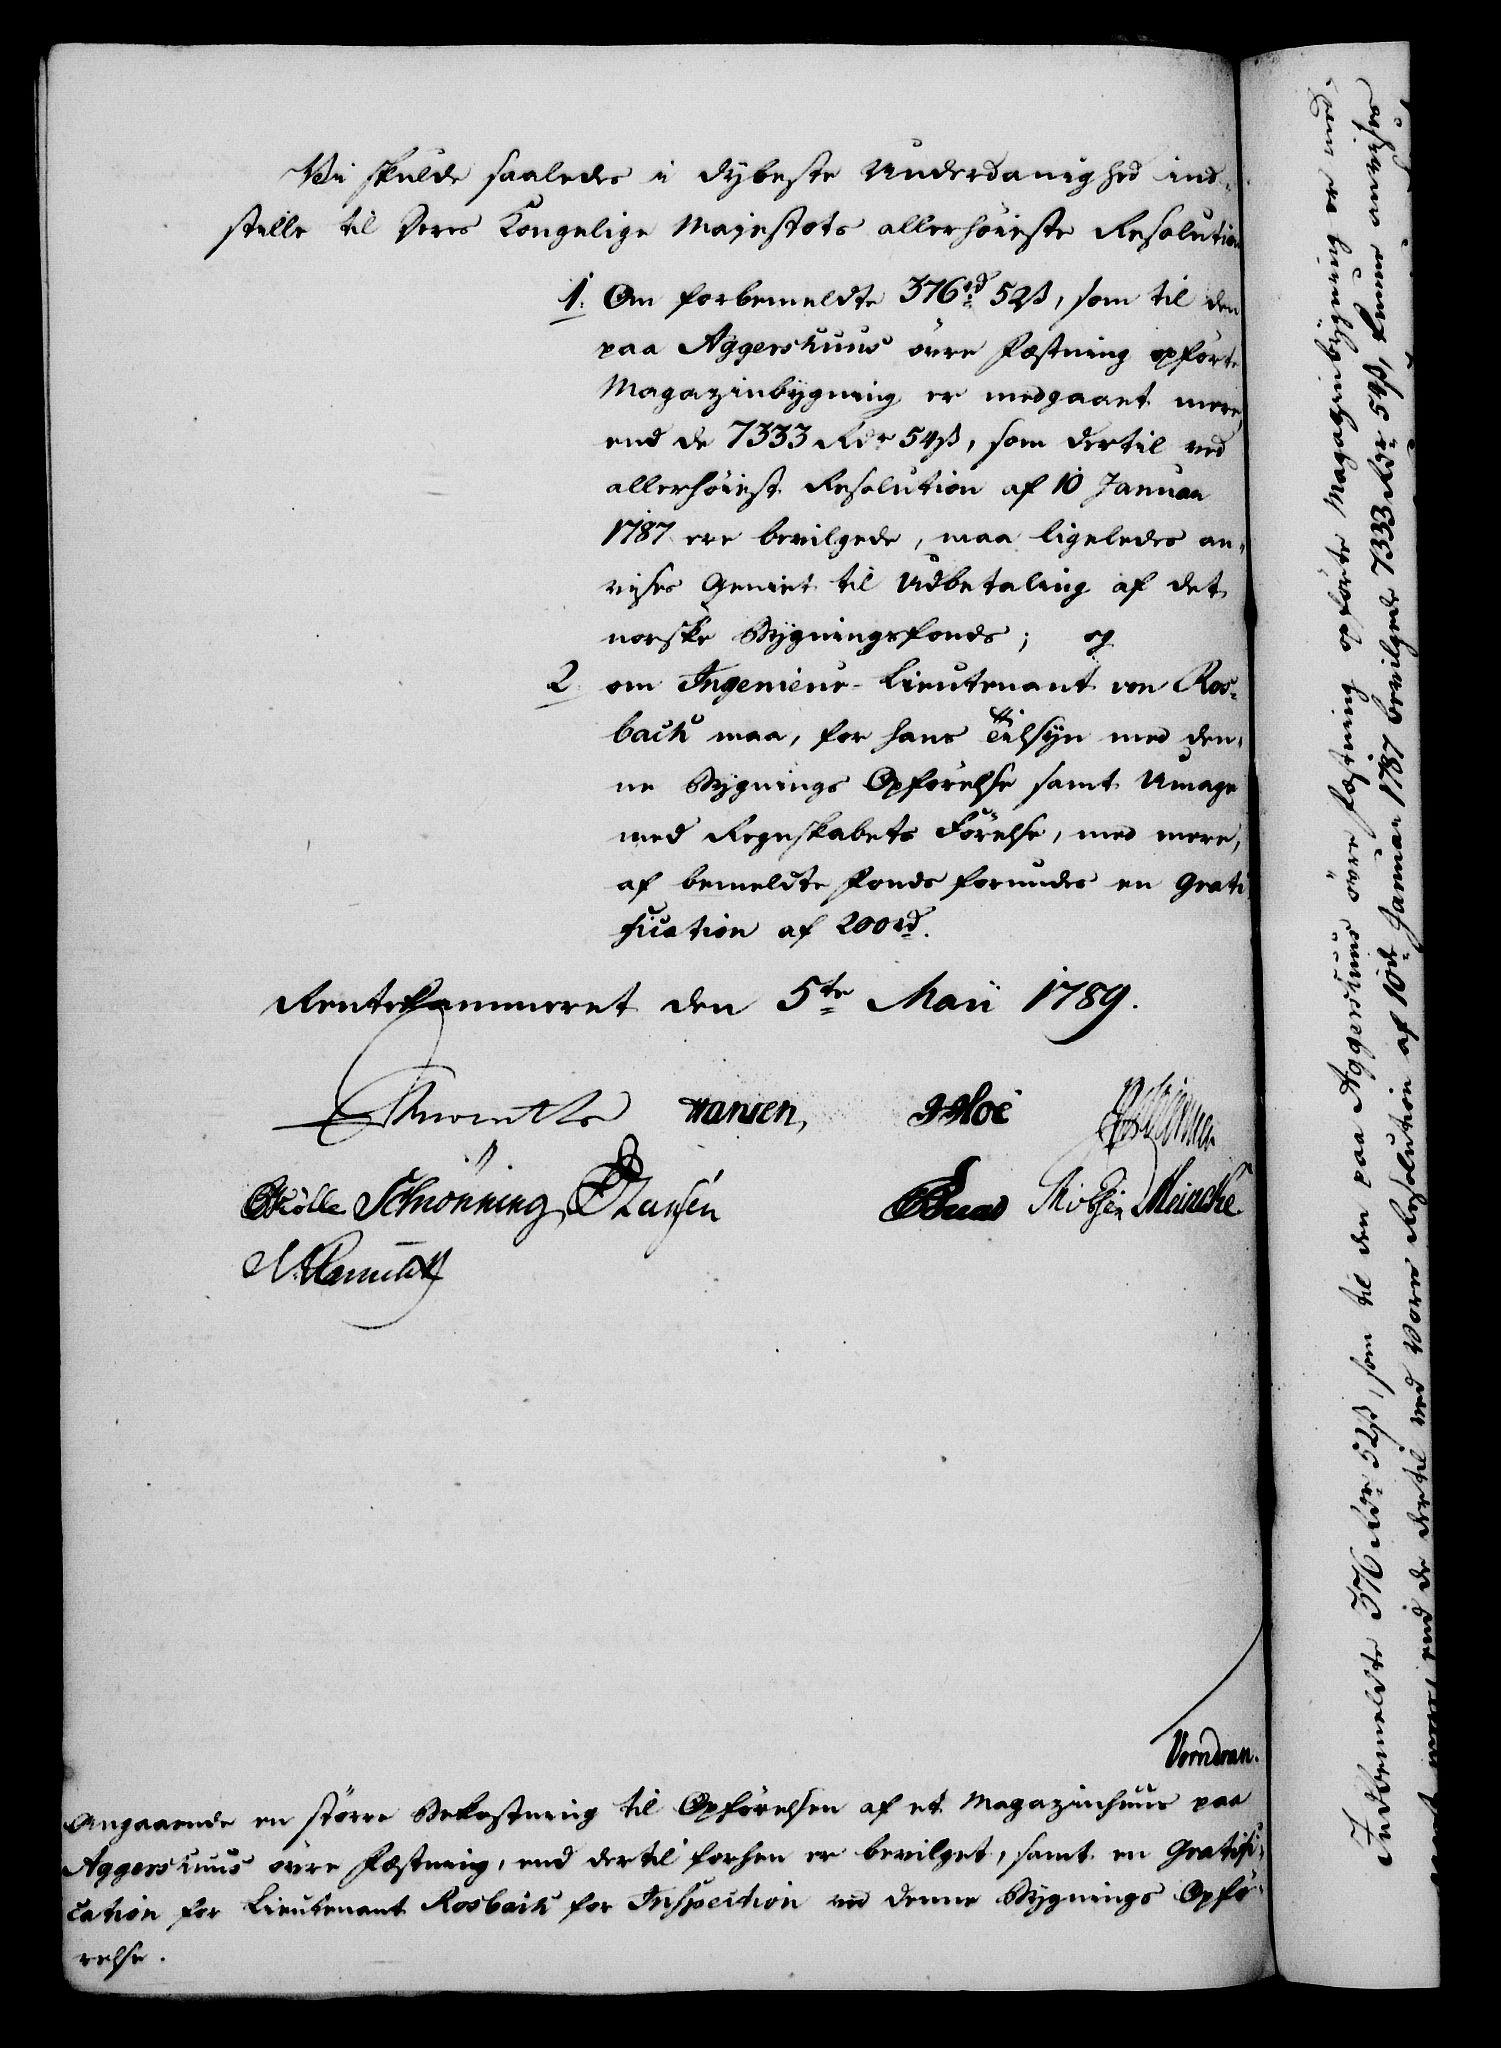 Vi skulde saaledes i dybeste Underdanighed ind-
stille til Deres Kongelige Majestæts allerhöieste Resolution
1. Om forbemeldte 376 rd 52 ß, som til den
paa Aggershuus övre Fæstning opförte
Magazinbygning er medgaaet mere,
end de 7333 Rdr 54 ß, som dertil ved
allerhöiest Resolution af 10 Januar
1787 ere bevilgede, maa ligeledes an-
vises Geniet til Udbetaling af det
norske Bygningsfonds; og
2. om Ingenieur-Lieutenant von Ros-
bach maa, for hans Tilsyn med den-
ne Bygnings Opförelse samt Umage
med Regnskabets Förelse, med mere,
af bemeldte Fonds forundes en Grati-
fication af 200 rd.
Rentekammeret den 5te Maii 1789.
Hansen, Hoë
Schönning,
Meincke
Vorndran.
Angaaende en större Bekostning til Opförelsen af et Magazinhuus paa
Aggershuus övre Fæstning, end dertil forhen er bevilget, samt en Gratifi-
cation for Lieutenant Rosbach for Inspection ved denne Bygnings Opfö-
relse.
Indbemeldte 376 Rdr 52 ß, som til den paa Aggershuus övre Fæstning opförte Magazinbygning er med-
gaaet mere, end de dertil ved Vores Resolution af 10de Januar 1787 bevilgede 7333 Rdr 54 ß, kunne anvises